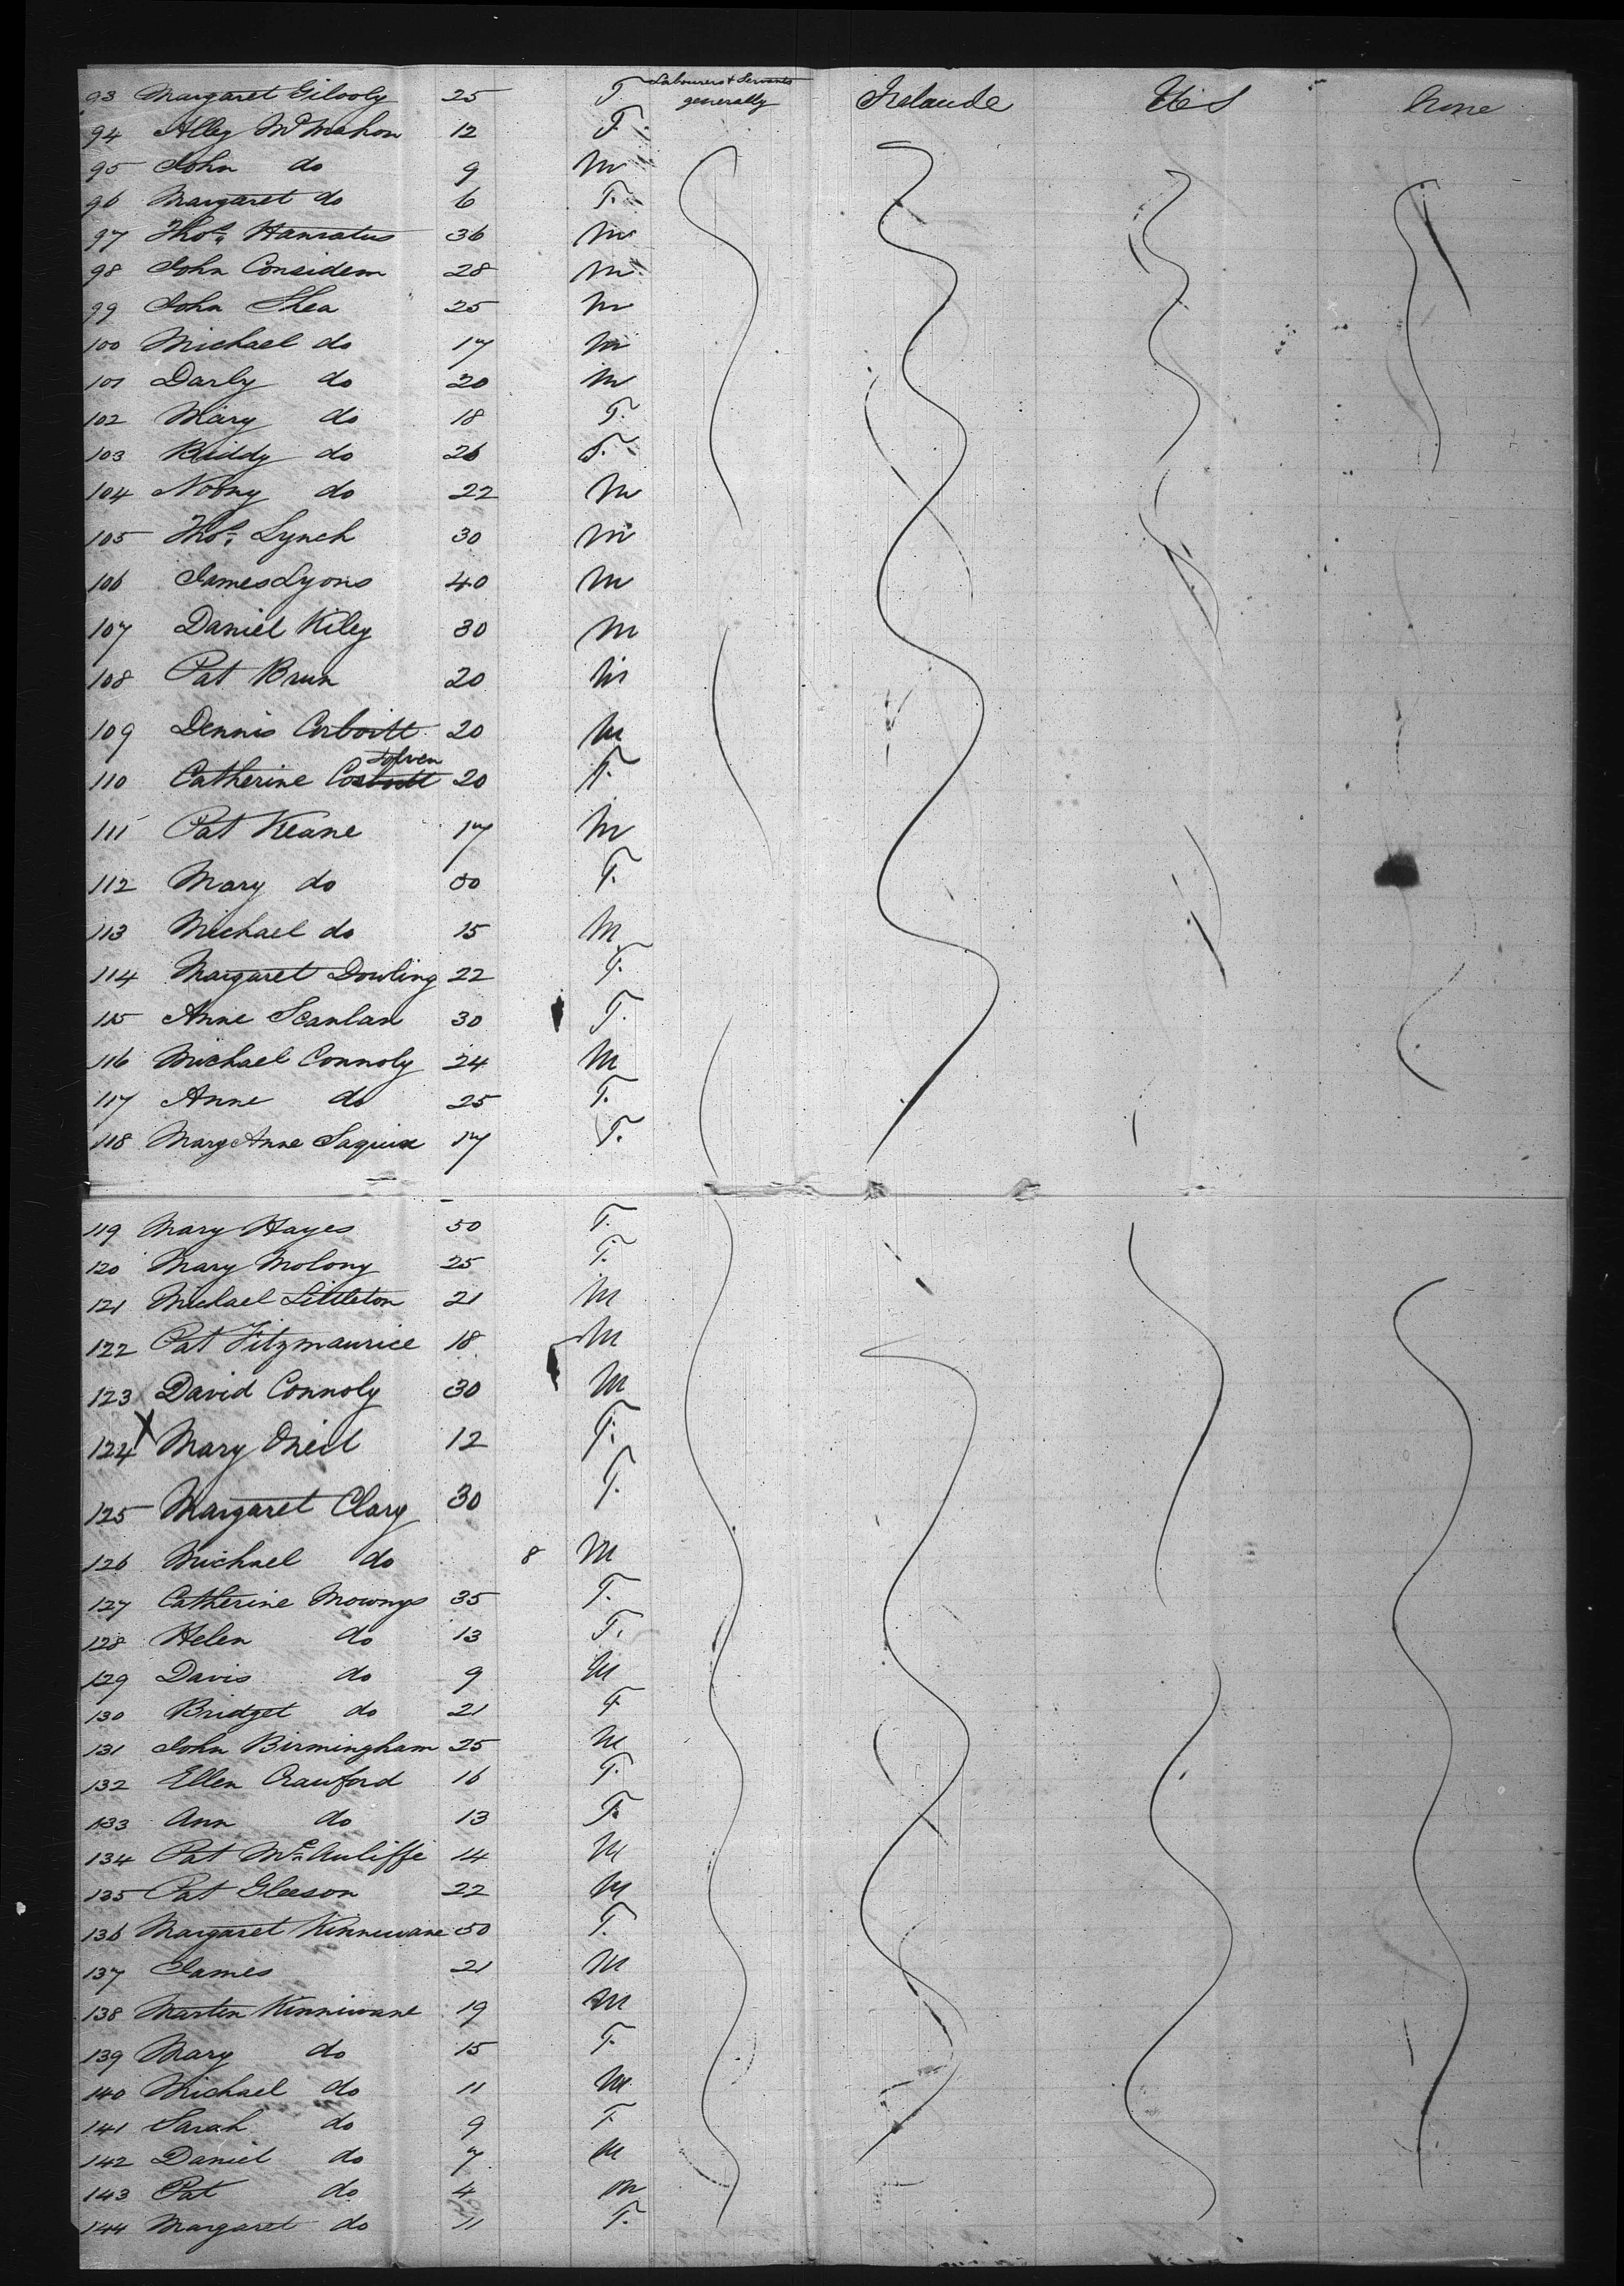 93 Margaret Gilooly 25 F Labourers & Servants generally Irelande US None
94 Alley McMahon 12 F.
95 John do 9 M
96 Margaret do 6 F.
97 Thos. Hanratus 36 M
98 John Considem 28 M
99 John Shea 25 M
100 Michael do 17 M
101 Darly do 20 M
102 Mary do 18 F.
103 Biddy do 26 F.
104 Noony do 22 M
105 Thos. Lynch 30 M
106 James Lyons 40 M
107 Daniel Kiley 30 M
108 Pat Brun 20 M
109 Dennis Corboitt 20 M
110 Catherine 20 F.
111 Pat Keane 17 M
112 Mary do 50 F.
113 Michael do 15 M
114 Margaret Dowling 22 F.
115 Anne Scanlan 30 F.
116 Michael Connoly 24 M
117 Anne do 25 F.
118 Mary Anne 17 F.
119 Mary Hayes 50 F.
120 Mary Molony 25 F.
121 Michael Littleton 21 M
122 Pat Fitzmaurice 18 M
123 David Connoly 30 M
124 X Mary Oneil 12 F.
125 Margaret Clary 30 F.
126 Michael do 8 M
127 Catherine Mownys 35 F.
128 Helen do 13 F.
129 Davis do 9 M
130 Bridget do 21 F
131 John Birmingham 25 M
132 Ellen Crawford 16 F.
133 Ann do 13 F.
134 Pat McAuliffe 14 M
135 Pat Gleeson 22 M
136 Margaret Kinnewane 50 F.
137 James 21 M
138 Marten Kinniwane 19 M
139 Mary do 15 F.
140 Michael do 11 M
141 Sarah do 9 F
142 Daniel do 7 M
143 Pat do 4 M
144 Margaret do 11 F.